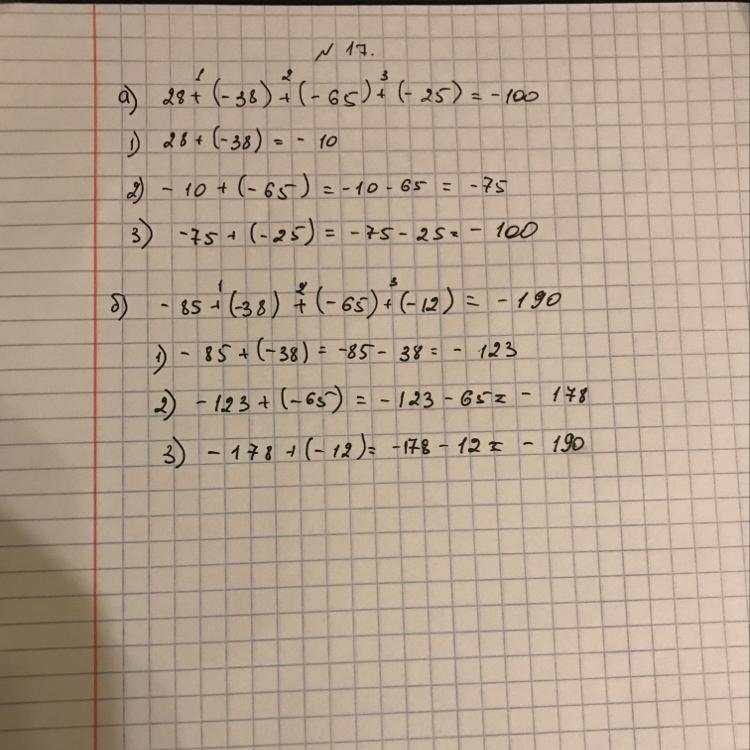 N 17.
а) 28 + (-38) + (-65) + (-25) = -100
1 2 3
1) 28 + (-38) = - 10
2) - 10 + (-65) = -10 - 65 = -75
3) -75 + (-25) = -75 - 25 = - 100
б) - 85 + (-38) + (-65) + (-12) = - 190
1 2 3
1) - 85 + (-38) = -85 - 38 = - 123
2) - 123 + (-65) = - 123 - 65 = - 178
3) - 178 + (-12) = -178 - 12 = - 190